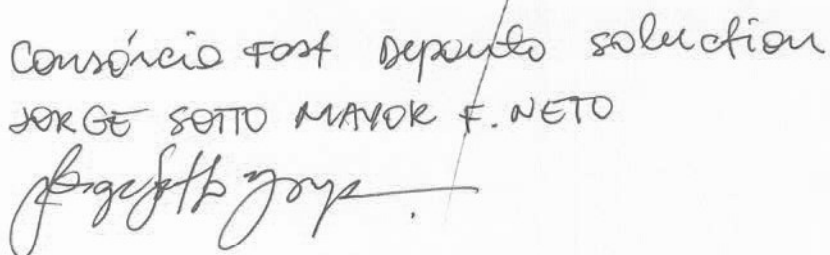 Consórcio Fast Deposito soluction
JORGE SOTTO MAYOR F. NETO